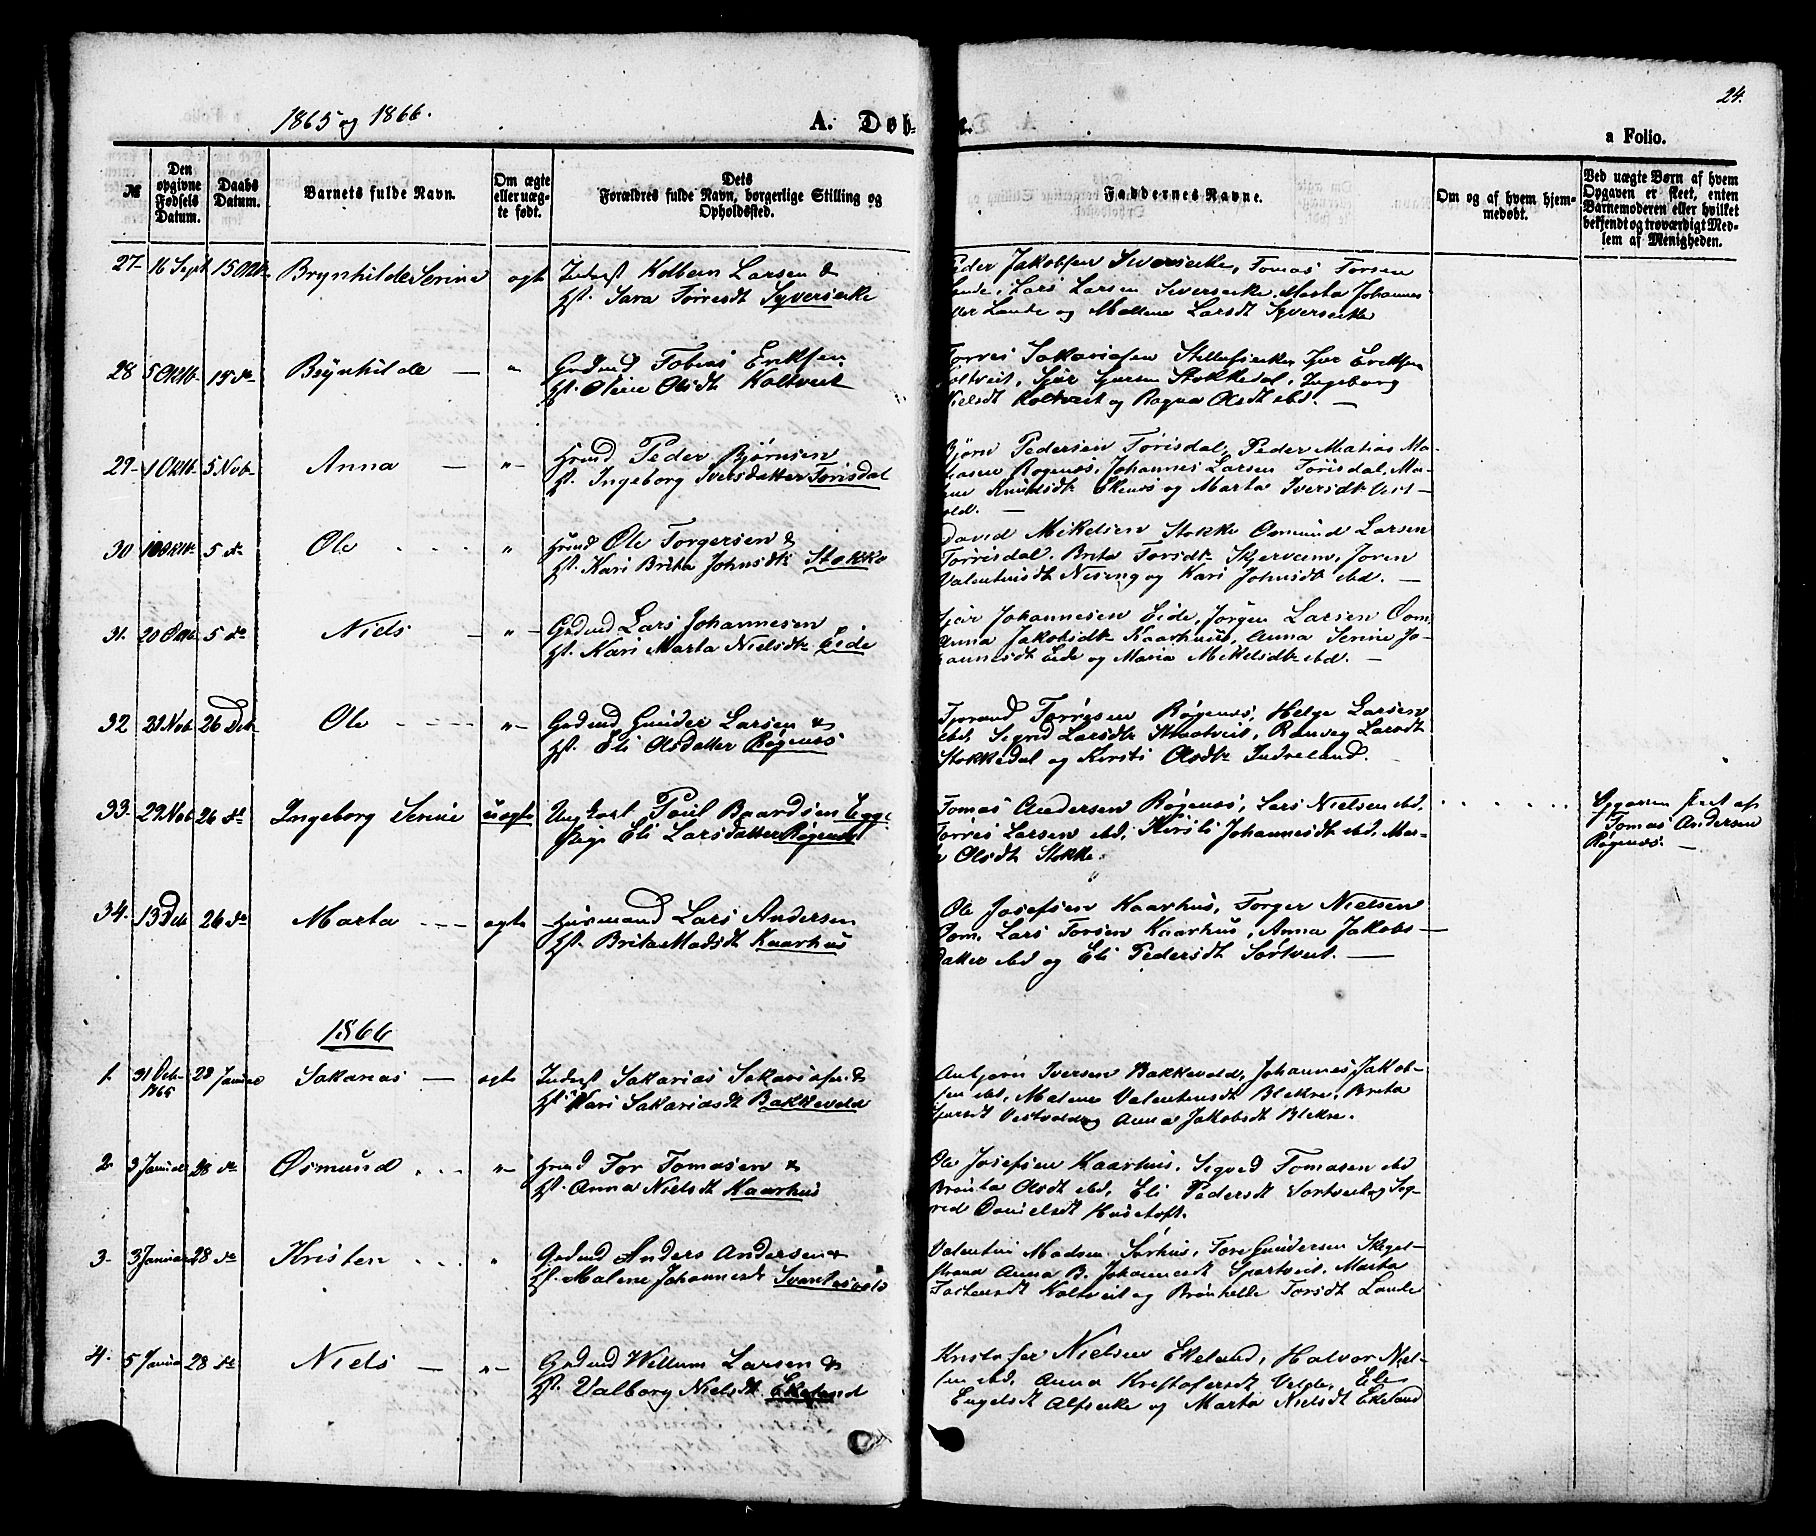 24.
1865 og 1866.
A. Døb-
e.
a Folio.
№
Den opgivne Fødsels Datum.
Daabs Datum.
Barnets fulde Navn.
Om ægte eller uægte født.
Dets Forældres fulde Navn, borgerlige Stilling og Opholdssted.
Faddernes Navne.
Om og af hvem hjemmedøbt.
Ved uægte Børn af hvem Opgaven er skeet, enten Barnemoderen eller hvilket bekjendt og troværdigt Medlem af Menigheden.
27- 16 Sept 15 Oktb- Brynhilde Serine ægte Inderst Kolbein Larsen &
Hst. Sara Torresdt Syverseike
Peder Jakobsen Siverseike, Tomas Torsen
Lande, Lars Larsen Siverseike, Marta Johannes
datter Lande og Mallene Larsdt Syverseike
28 5 Oktb- 15 do Brynhilde — „ Grdmd Tobias Eriksen
Hst. Oline Olsdt Koltveit
Torres Sakariasen Eriksen
Koltveit, Sjur Sjursen Stokkedal, Ingeborg
Nielsdt Koltveit og Ragna Olsdt ibd. —
29- 1 Oktb- 5 Nvb- Anna — „ Hrmd Peder Bjørnsen
Hst. Ingeborg Iversdatter Torisdal
Bjørn Pedersen Torisdal, Peder Matias Ma-
Røgenes, Johannes Larsen Torisdal, Ma-
Knudsdt og Marta Iversdt Vest-
vold. —
30 10 Oktb. 5 do Ole „ Hrmd Ole Torgersen &
Hst. Kari Brita Johnsdt Stokke
David Mikelsen Stokke Osmund Larsen
Torrisdal. Brita Torsdt Skjerveim, Joren
Valentinsdt og Kari Johnsdt ibd. —
31. 20 Oktb. 5 do Niels — „ Grdmd Lars Johannesen
Hst. Kari Marta Nielsdt Eide
Sjur Johannesen Eide, Jørgen Larsen Oom
Anna Jakobsdt Kaarhus, Anna Serine Jo-
hannesdt Eide og Maria Mikelsdt ibd. —
32 23 Nvb 26 Deb- Ole „ Grdmd Gunder Larsen &
Hst. Eli Olsdatter Røgenes
Tjerand Torresen Røgenes, Helge Larsen
ibd, Sigrid Larsdt Ranveg Larsdt
Stokkedal og Kirsti Olsdt Indreland.
33. 29 Nvb 26 do Ingeborg Serine uægte Ungkarl Poul Baardsen Egge
Pige Eli Larsdatter Røgenes
Tomas Andersen Røgenes, Lars Nielsen ibd,
Torres Larsen ibd, Kirsti Johannesdt ibd, Mar-
ta Olsdt Stokke.
Opgaven skeet af
Tomas Andersen
Røgenes. —
34. 13 Deb 26 do Marta ægte Husmand Lars Andersen
Hst. Brita Madsdt Kaarhus
Ole Josefsen Kaarhus, Torger Nielsen
Oom, Lars Torsen Kaarhus, Anna Jakobs-
datter ibd og Eli Pedersdt Sørtveit. —
1866
1. 31 Deb 1865 28 Januar Sakarias — ægte Inderst Sakarias Sakariasen &
Hst Kari Sakariasdt Bakkevold
Anbjørn Iversen Bakkevold, Johannes Jakob-
sen ibd, Malene Valentinsdt Blekre, Brita
Sjursdt Vestvold og Anna Jakobsdt Blekre.
2. 3 Januar 28 do Osmund „ Hrmd Tor Tomasen &
Hst. Anna Nielsdt Kaarhus
Ole Josefsen Kaarhus, Sigvod Tomasen ibd
Olsdt ibd, Eli Pedersdt Sørtveit og Sig-
rid Danielsdt Husetoft.
3. 3 Januar 28 do Kristen „ Grdmd Anders Andersen &
Hst. Malene Johannesdt
Valentin Madsen Tore Gundersen
Anna B. Johannesdt Marta
Koltveit og Brønhilde Torsdt Lande
4. 5 Januar 28 do Niels — „ Grdmd Willum Larsen &
Hst. Valborg Nielsdt Ekeland
Kristofer Nielsen Ekeland, Halvor Niel-
sen ibd, Anna Kristofersdt Velde, Eli
Engelsdt Alfseike og Marta Nielsdt Ekeland